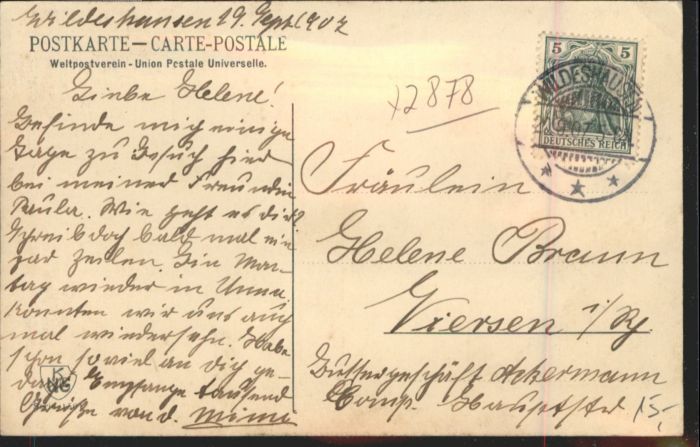 Wildeshausen 19. Sept. 1907
POSTKARTE — CARTE-POSTALE
Weltpostverein - Union Postale Universelle.
Liebe Helene!
Befinde mich einige
Tage zu Besuch hier
bei meiner Freundin
Paula. Wie geht es dir?
Schreib doch bald mal ein
par Zeilen. Bin Mon-
tag wieder in Unna
könnten wir uns auch
mal wiedersehn. Habe
schon so viel an dich ge-
dacht. Empfange tausend
Grüße von d. Mimi
KNG
12878
5 5
DEUTSCHES REICH
WILDESHAUSEN
Fräulein
Helene Braun
Viersen i/Rh.
Buttergeschäft Ackermann
Comp. Hauptstr 15,